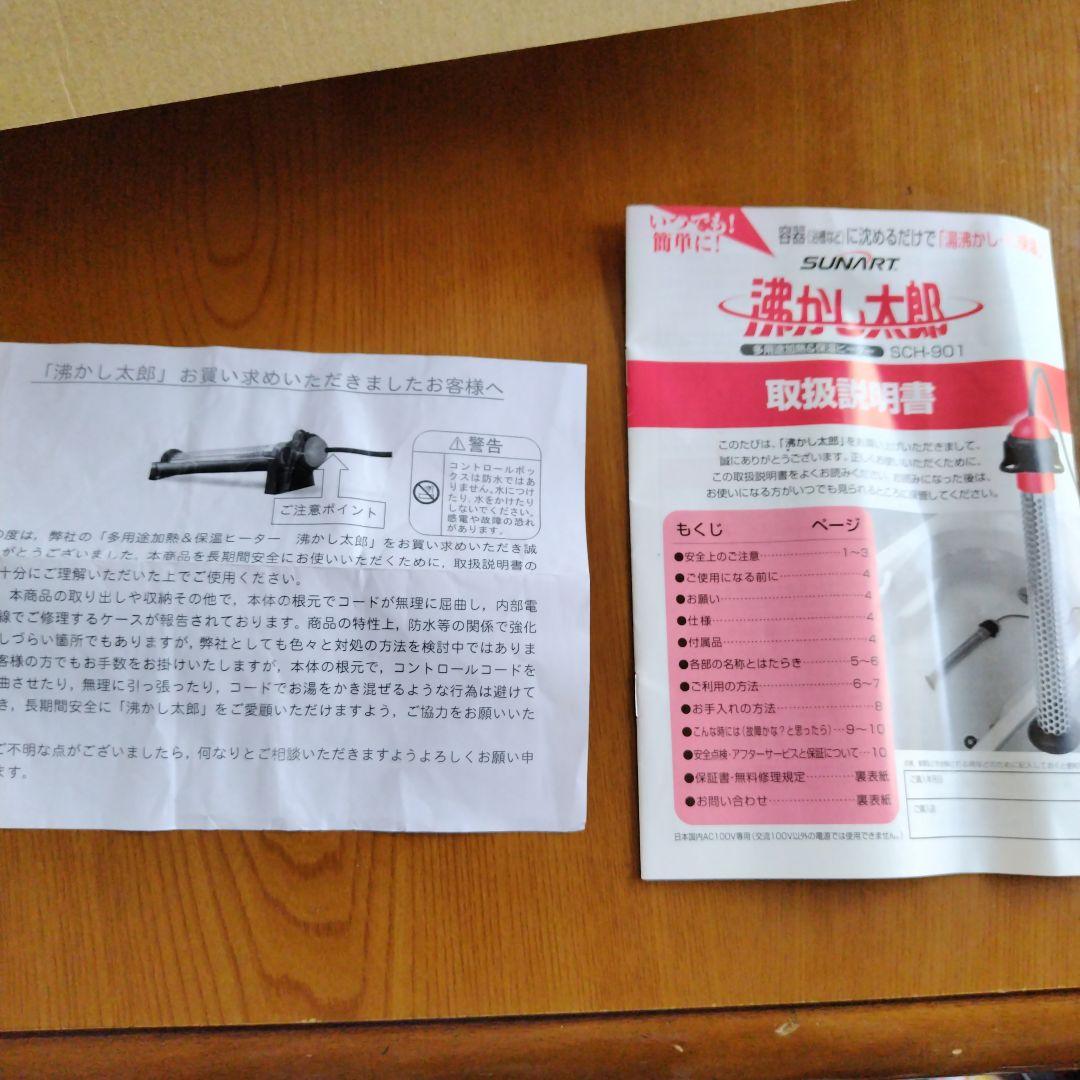 「沸かし太郎」お買い求めいただきましたお客様へ
警告
コントロールボッ
クスは防水ではあ
りません。水につけ
たり、水をかけたり
しないでください。
感電や故障の恐れ
があります。
ご注意ポイント
の度は，弊社の「多用途加熱＆保温ヒーター　沸かし太郎」をお買い求めいただき誠
がとうございました。本商品を長期間安全にお使いいただくために，取扱説明書の
十分にご理解いただいた上でご使用ください。
本商品の取り出しや収納その他で，本体の根元でコードが無理に屈曲し，内部電
線でご修理するケースが報告されております。商品の特性上，防水等の関係で強化
しづらい箇所でもありますが，弊社としても色々と対処の方法を検討中ではありま
客様の方でもお手数をお掛けいたしますが，本体の根元で，コントロールコードを
曲させたり，無理に引っ張ったり，コードでお湯をかき混ぜるような行為は避けて
き，長期間安全に「沸かし太郎」をご愛顧いただけますよう，ご協力をお願いいた
ご不明な点がございましたら，何なりとご相談いただきますようよろしくお願い申
ます。
いつでも!
簡単に!
容器(浴槽など)に沈めるだけで「湯沸かし
SUNART
沸かし太郎
多用途加熱&保温ヒーター SCH-901
取扱説明書
このたびは、「沸かし太郎」をお買い上げいただきまして、
誠にありがとうございます。正しくお使いいただくために、
この取扱説明書をよくお読みください。お読みになった後は、
お使いになる方がいつでも見られるところに保管してください。
もくじ ページ
●安全上のご注意 1～3
●ご使用になる前に 4
●お願い 4
●仕様 4
●付属品 4
●各部の名称とはたらき 5～6
●ご利用の方法 6～7
●お手入れの方法 8
●こんな時には(故障かな?と思ったら) 9～10
●安全点検・アフターサービスと保証について 10
●保証書・無料修理規定 裏表紙
●お問い合わせ 裏表紙
ご購入年月日
ご購入店
日本国内AC100V専用(交流100V以外の電源では使用できません。)